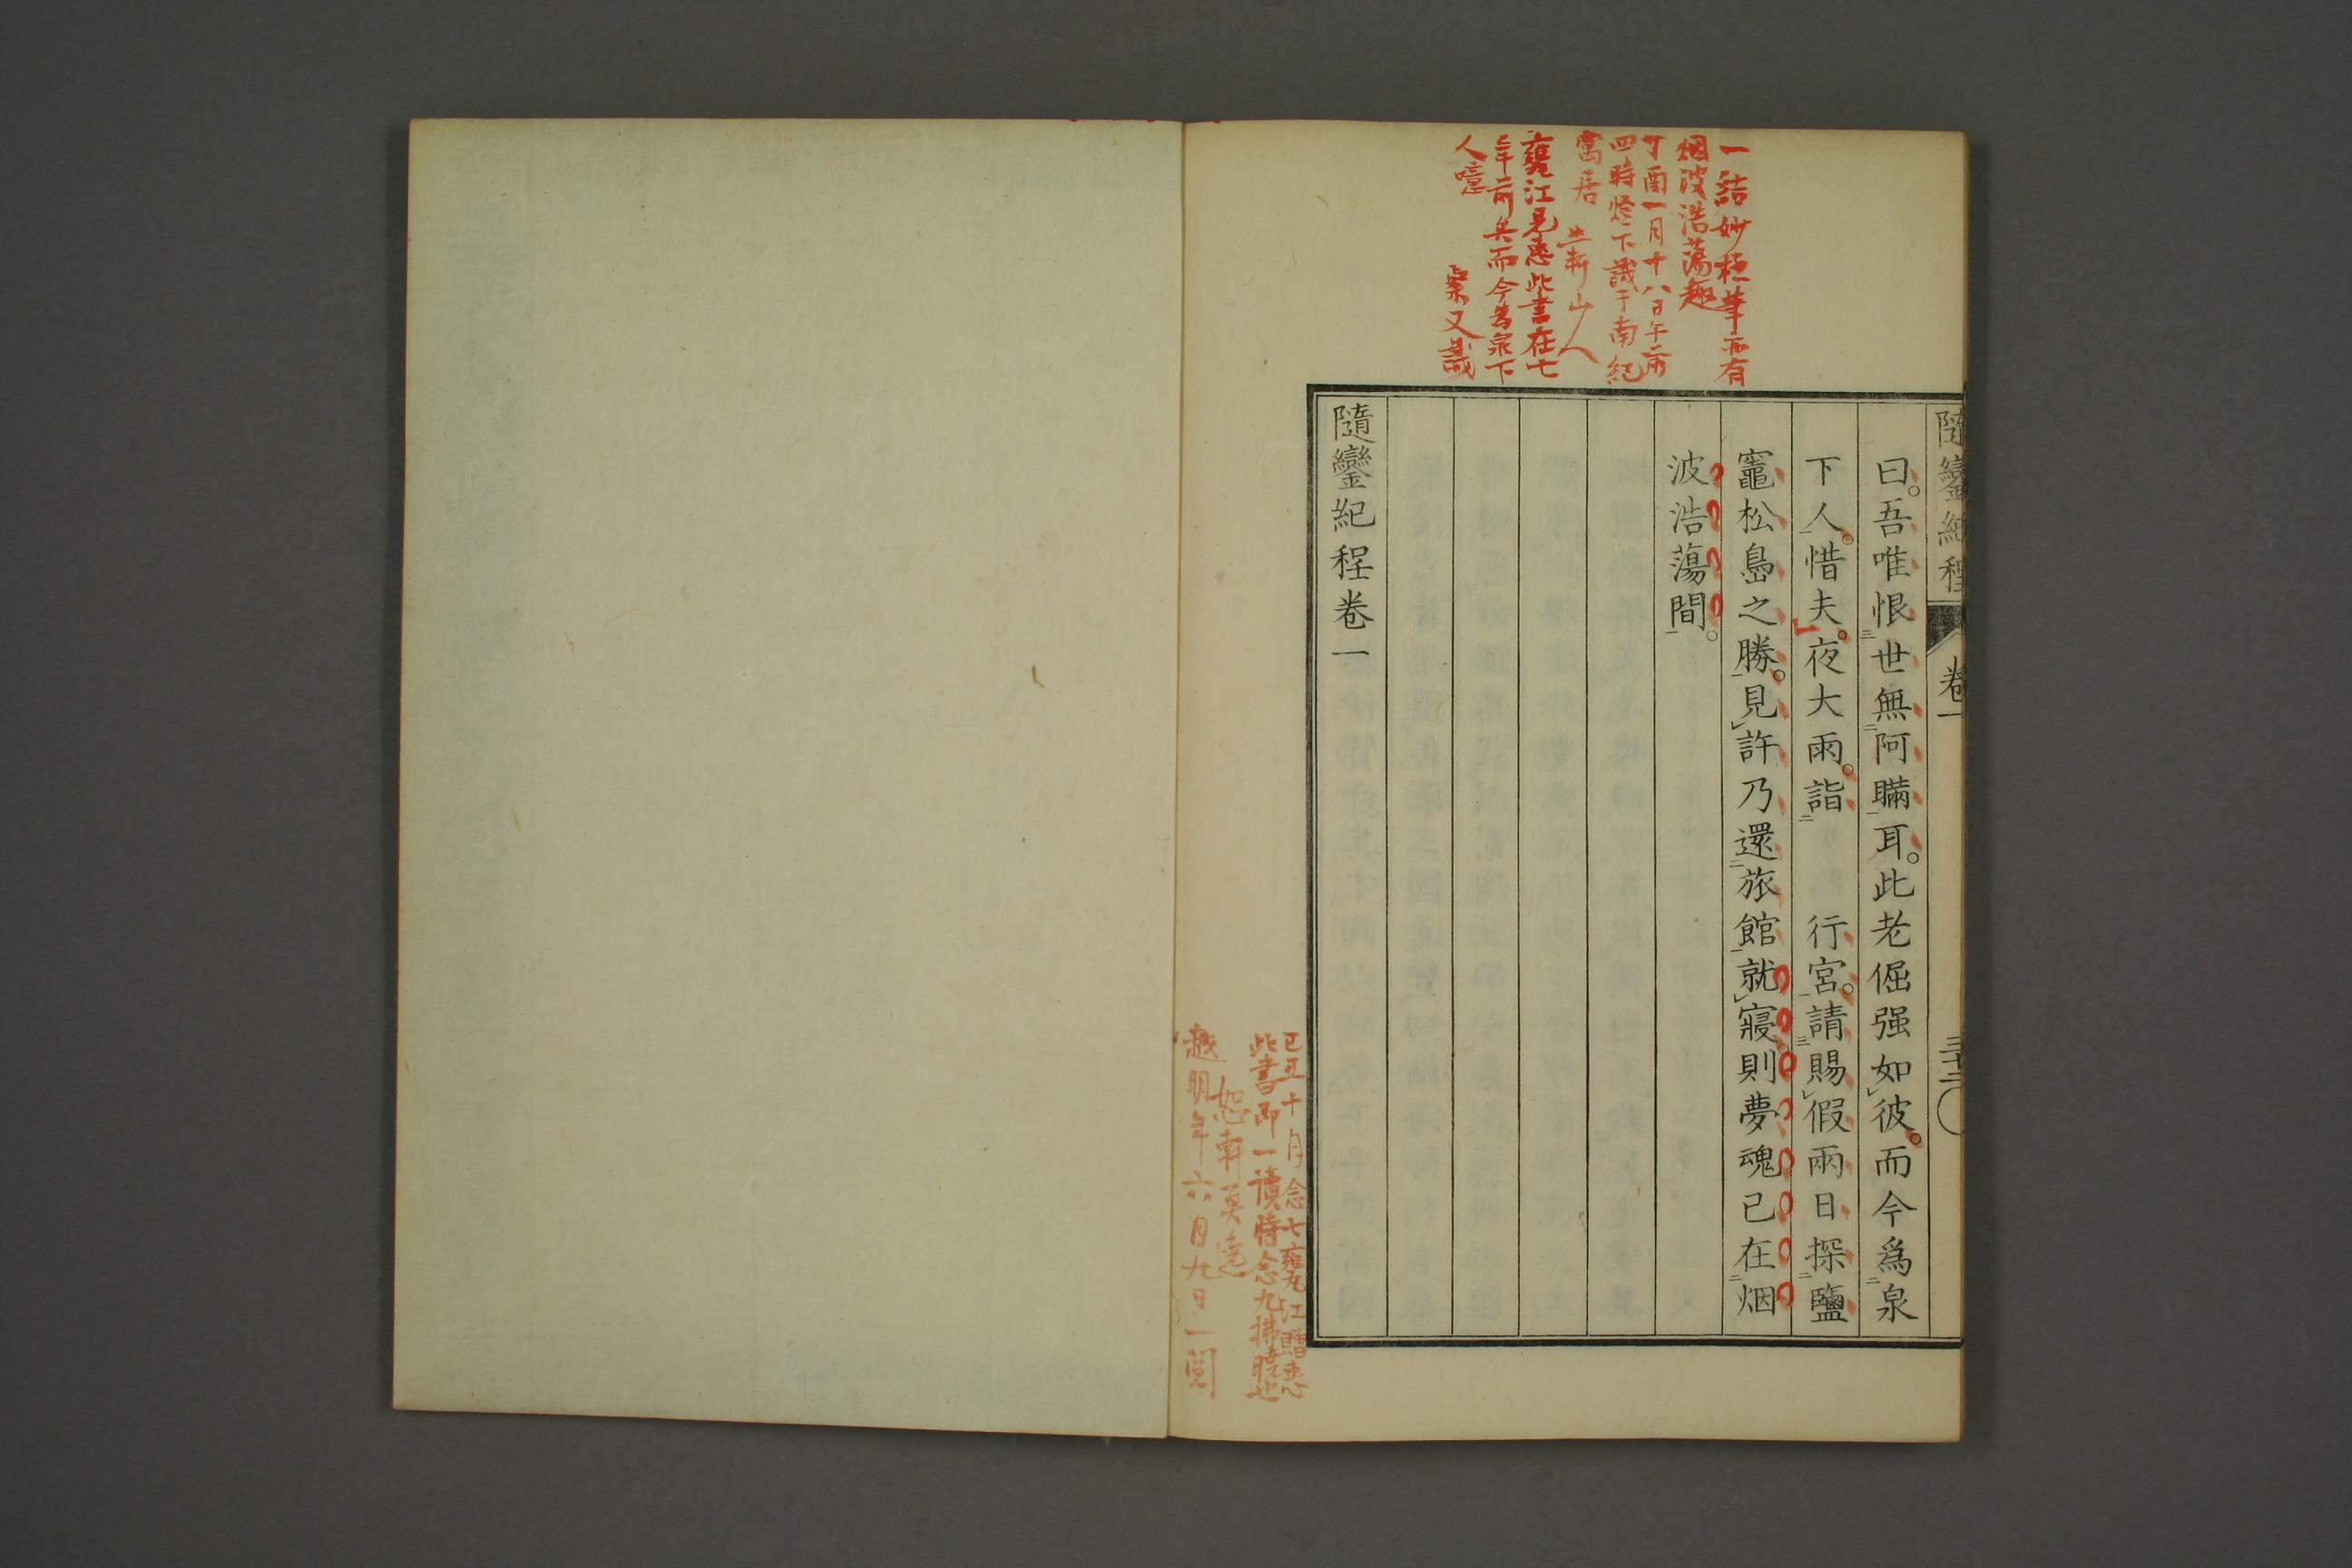 隨鑾紀程
卷一
三十二
曰。吾唯恨世無阿瞞耳。此老倔强如彼。而今爲泉
下人。惜夫。夜大雨。詣 行宮。請賜假兩日探鹽
竈松島之勝。見許乃還旅館就寢則夢魂已在烟
波浩蕩間。
隨鑾紀程卷一
一結妙極筆亦有
烟波浩蕩趣
丁酉一月十八日午前
四時燈下識于南紀
寓居
軒山人
甕江見惠此書在七
年前矣而今爲泉下
人噫
又識
己丑十月念七甕江贈惠
此書即一讀時念九拂曉也
恕軒
越明年六月九日一閲